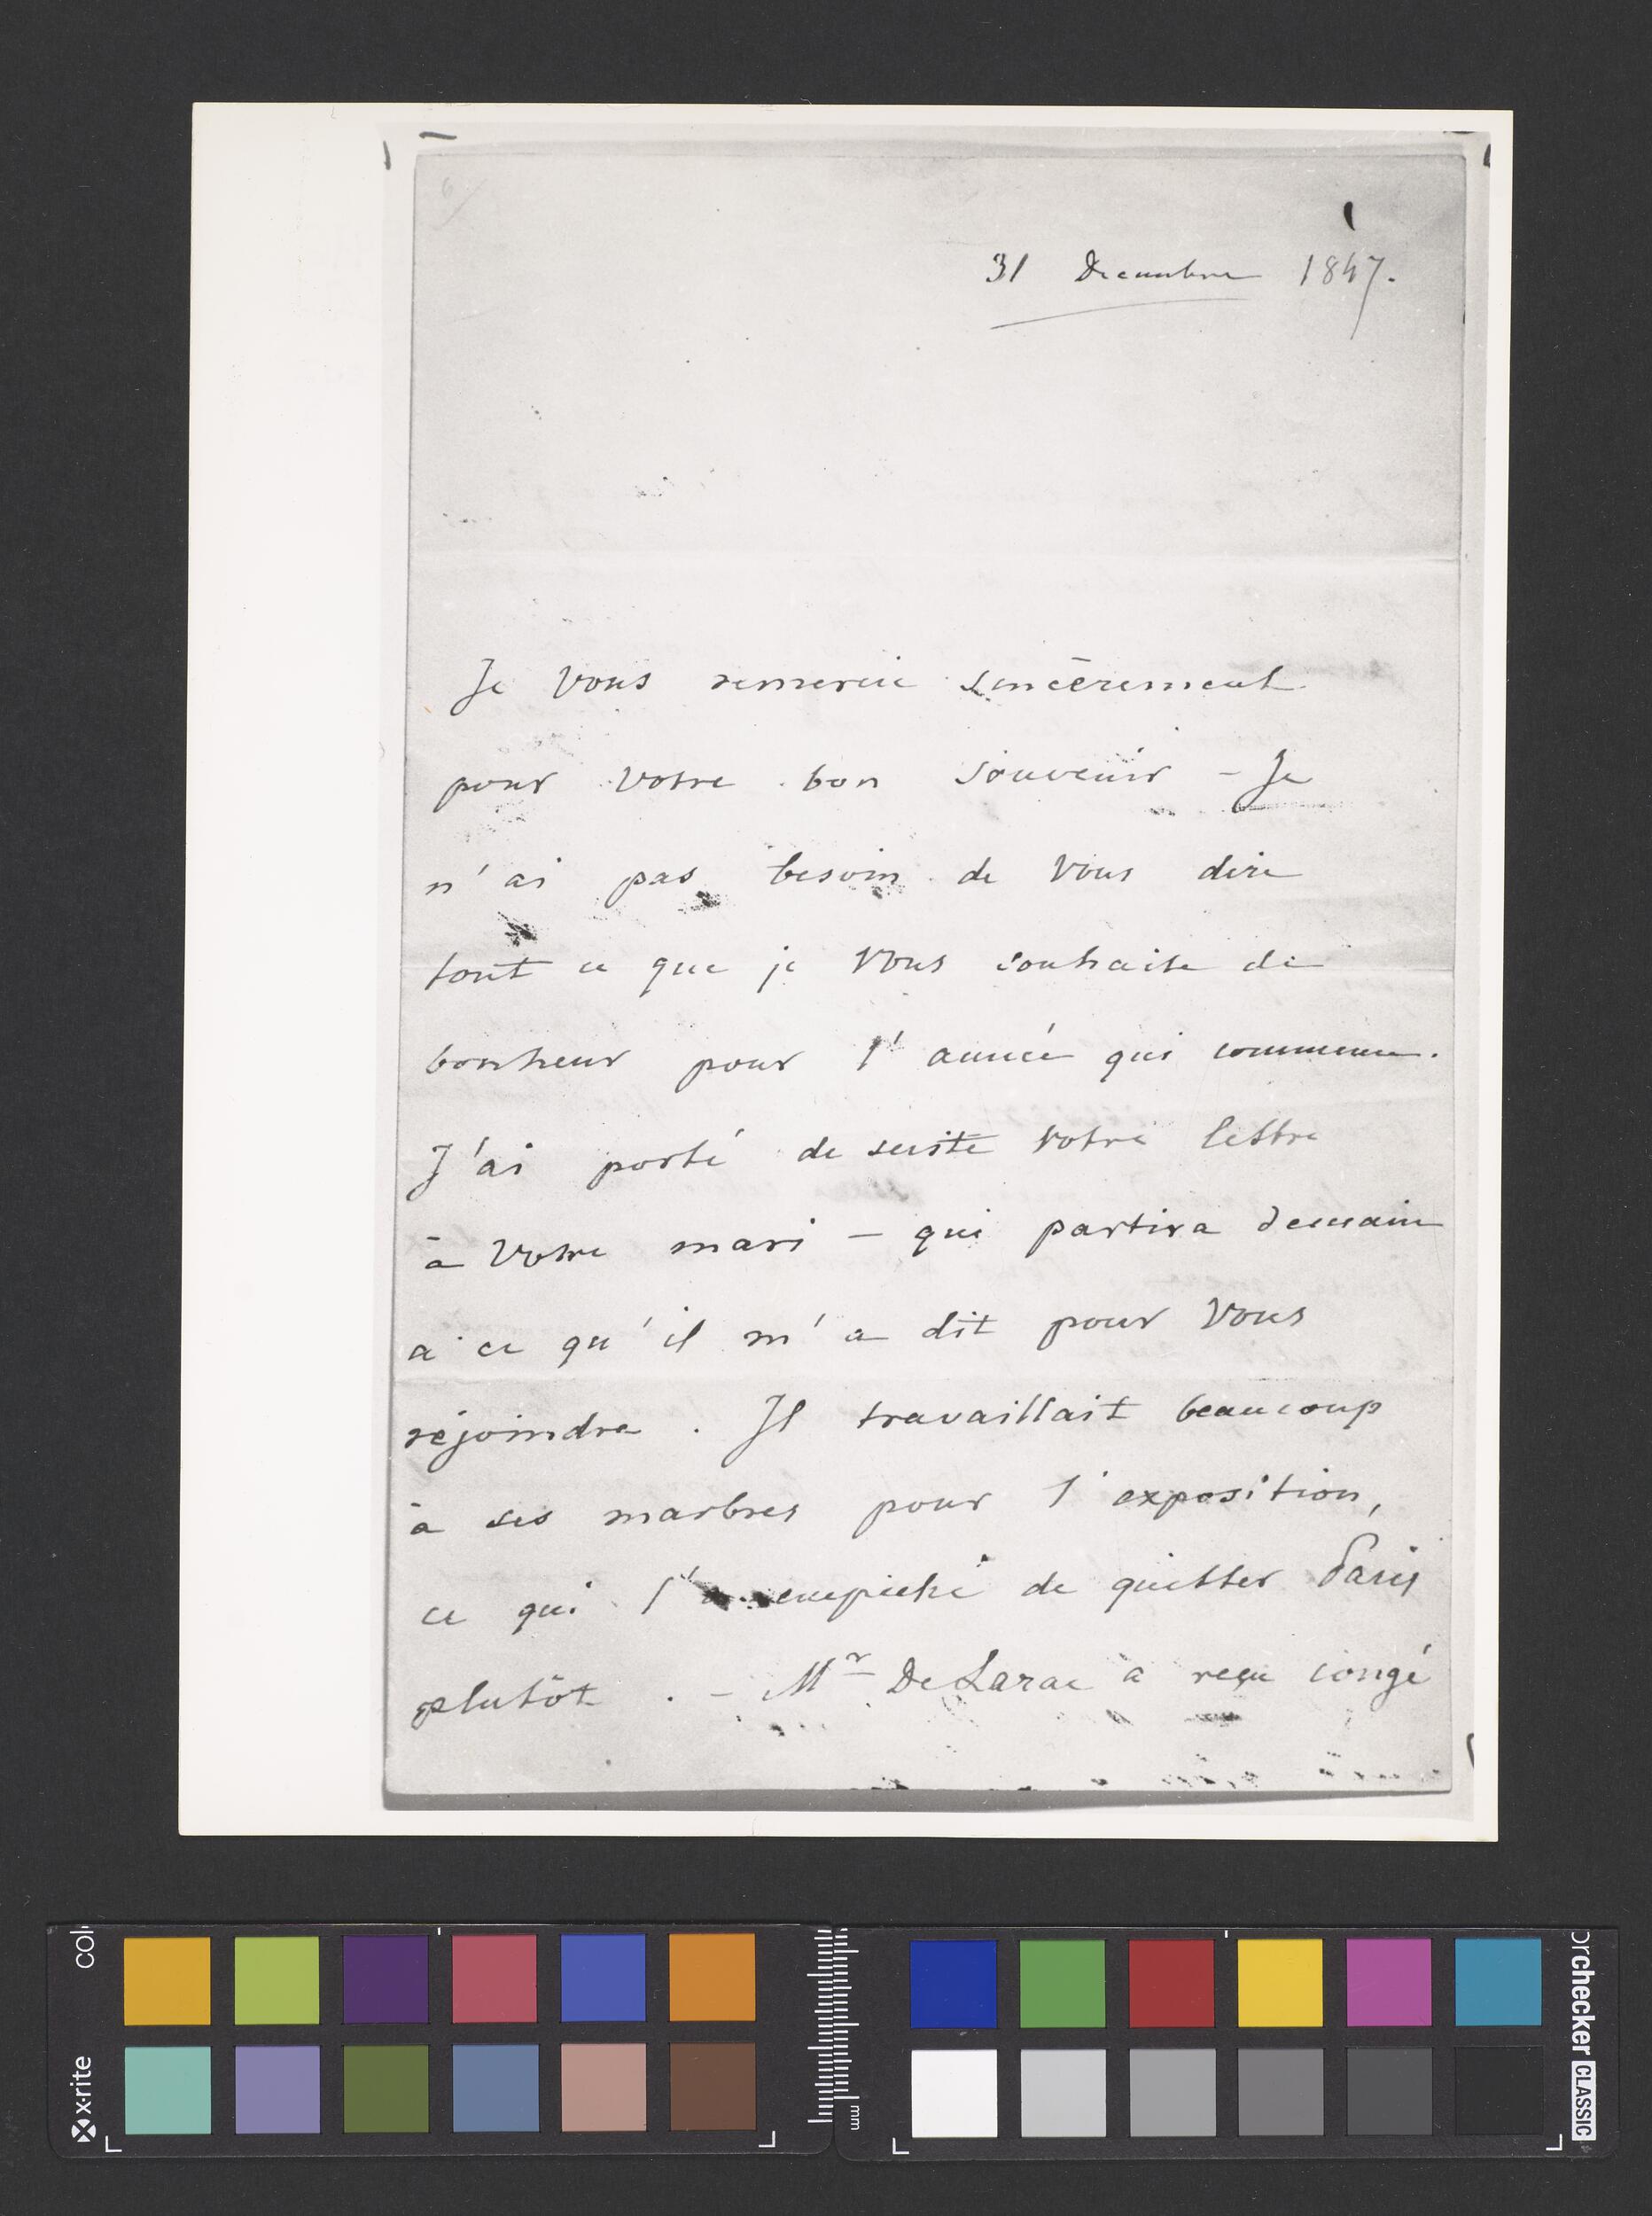 6/
31 Decembre 1847.
Je vous remercie sincèrement
pour votre bon souvenir - Je
n'ai pas besoin de vous dire
tout ce que je vous souhaite de
bonheur pour l'année qui commence.
J'ai porté de suite votre lettre
à votre mari – qui partira demain
a ce qu'il m'a dit pour vous
rejoindre . Il travaillait beaucoup
à ses marbres pour l'exposition,
ce qui l'a empêché de quitter Paris
plutôt . – Mr De Larac a reçu congé
x·rite
mm
checker CLASSIC